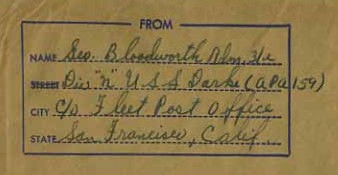 FROM
NAME Geo. Bloodworth Rdm. 3/c
STREET Div "N" U.S.S Darke (APA 159)
CITY c/o Fleet Post Office
STATE San Francisco, Calif.